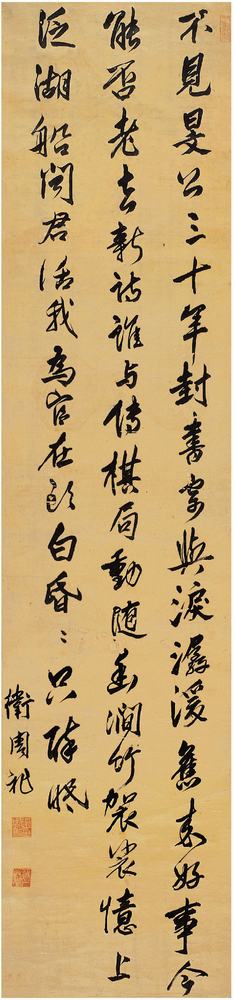 不見旻公三十年封書寄與淚潺湲舊來好事今
能否老去新詩誰與傳棋局動隨幽澗竹袈裟憶上
泛湖船聞君話我為官在頭白昏〻只醉眠
衛周祚